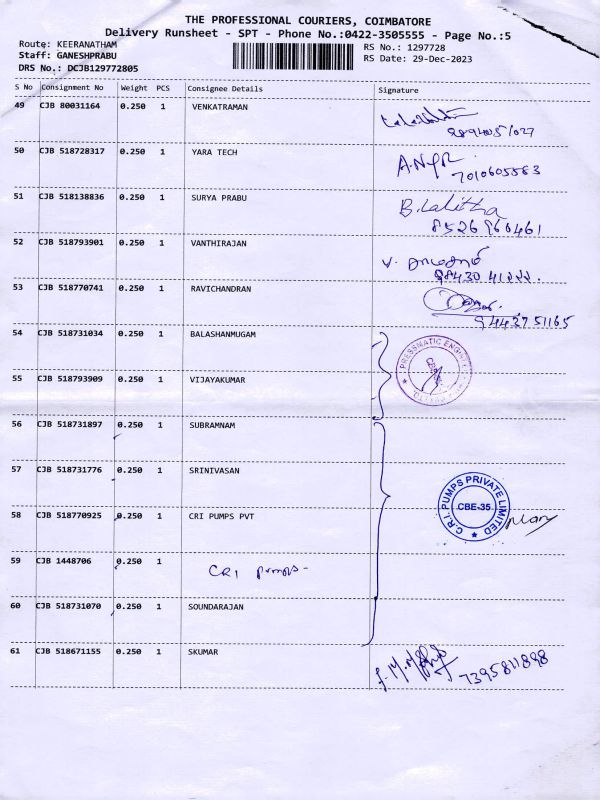 THE PROFESSIONAL COURIERS, COIMBATORE
Delivery Runsheet - SPT - Phone No.:0422-3505555 - Page No.:5
Route: KEERANATHAM
Staff: GANESHPRABU
DRS No.: DCJB129772805
RS No.: 1297728
RS Date: 29-Dec-2023
S No Consignment No Weight PCS Consignee Details Signature
49 CJB 80031164 0.250 1 VENKATRAMAN
50 CJB 518728317 0.250 1 YARA TECH
7010605583
51 CJB 518138836 0.250 1 SURYA PRABU B.Lalitha
8526960461
52 CJB 518793901 0.250 1 VANTHIRAJAN
98430 41222.
53 CJB 518770741 0.250 1 RAVICHANDRAN
9442751165
54 CJB 518731034 0.250 1 BALASHANMUGAM
PRESSMATIC
55 CJB 518793909 0.250 1 VIJAYAKUMAR
56 CJB 518731897 0.250 1 SUBRAMNAM
57 CJB 518731776 0.250 1 SRINIVASAN
C.R.I. PUMPS PRIVATE LIMITED
CBE-35
58 CJB 518770925 0.250 1 CRI PUMPS PVT
59 CJB 1448706 0.250 1 CRI pumps-
60 CJB 518731070 0.250 1 SOUNDARAJAN
61 CJB 518671155 0.250 1 SKUMAR
7395811898